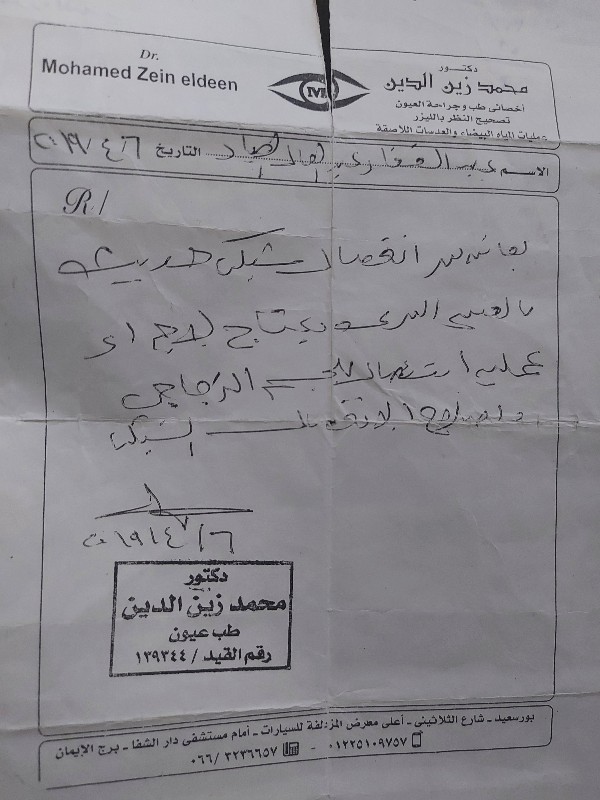 Dr.
Mohamed Zein eldeen
دكتور
محمد زين الدين
أخصائى طب وجراحة العيون
تصحيح النظر بالليزر
عمليات المياه البيضاء والعدسات اللاصقة
الاسم عبد الغفار عبد التاريخ ٢٠١٩/٤/٦
R/
يعانى من انفصال شبكى حديث
بالعين اليسرى ويحتاج لإجراء
عملية استئصال للجسم الزجاجى
وإصلاح الانفصال الشبكى
٢٠١٩/٤/٦
دكتور
محمد زين الدين
طب عيون
رقم القيد / ١٣٩٣٤٤
بورسعيد - شارع الثلاثينى - أعلى معرض المزدلفة للسيارات - أمام مستشفى دار الشفا - برج الإيمان
٠١٢٢٥١٠٩٧٥٧ - ٠٦٦/٣٢٣٦٦٥٧